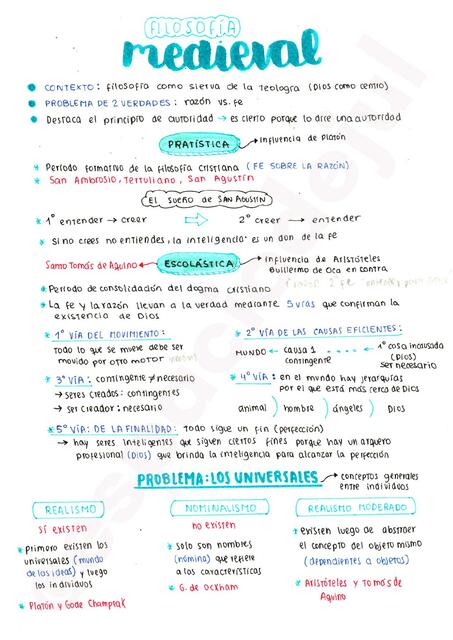 FILOSOFÍA
medieval
• CONTEXTO: filosofía como sierva de la Teología (Dios como centro)
• PROBLEMA DE 2 VERDADES: razón vs. fe
• Destaca el principio de autoridad → es cierto porque lo dice una autoridad
PATRÍSTICA → influencia de Platón
* Período formativo de la filosofía cristiana (FE SOBRE LA RAZÓN)
* San Ambrosio, Tertuliano, San Agustín
EL SUEÑO DE SAN AGUSTÍN
* 1° entender → creer ⇒ 2° creer → entender
* Si no crees no entiendes, la inteligencia es un don de la fe
Santo Tomás de Aquino ← ESCOLÁSTICA → influencia de Aristóteles
Guillermo de Oca en contra
* Período de consolidación del dogma cristiano
* La fe y la razón llevan a la verdad mediante 5 vías que confirman la
existencia de Dios
* 1° VÍA DEL MOVIMIENTO:
Todo lo que se mueve debe ser
movido por otro motor
* 2° VÍA DE LAS CAUSAS EFICIENTES:
MUNDO ← CAUSA 1 ← 1° cosa incausada
contingente (DIOS)
ser necesario
* 3° VÍA: contingente ≠ necesario
→ seres creados: contingentes
→ ser creador: necesario
* 4° VÍA: en el mundo hay jerarquías
por el que está más cerca de Dios
animal ⟩ hombre ⟩ ángeles ⟩ Dios
* 5° VÍA: DE LA FINALIDAD: Todo sigue un fin (perfección)
→ hay seres inteligentes que siguen ciertos fines porque hay un arquero
profesional (DIOS) que brinda la inteligencia para alcanzar la perfección
PROBLEMA: LOS UNIVERSALES → conceptos generales
entre individuos
REALISMO
sí existen
* primero existen los
universales (mundo
de las ideas) y luego
los individuos
* Platón y G. de Champeak
NOMINALISMO
no existen
* solo son nombres
(nómina) que refiere
a las características
* G. de Ockham
REALISMO MODERADO
* existen luego de abstraer
el concepto del objeto mismo
(dependientes a objetos)
* Aristóteles y Tomás de
Aquino